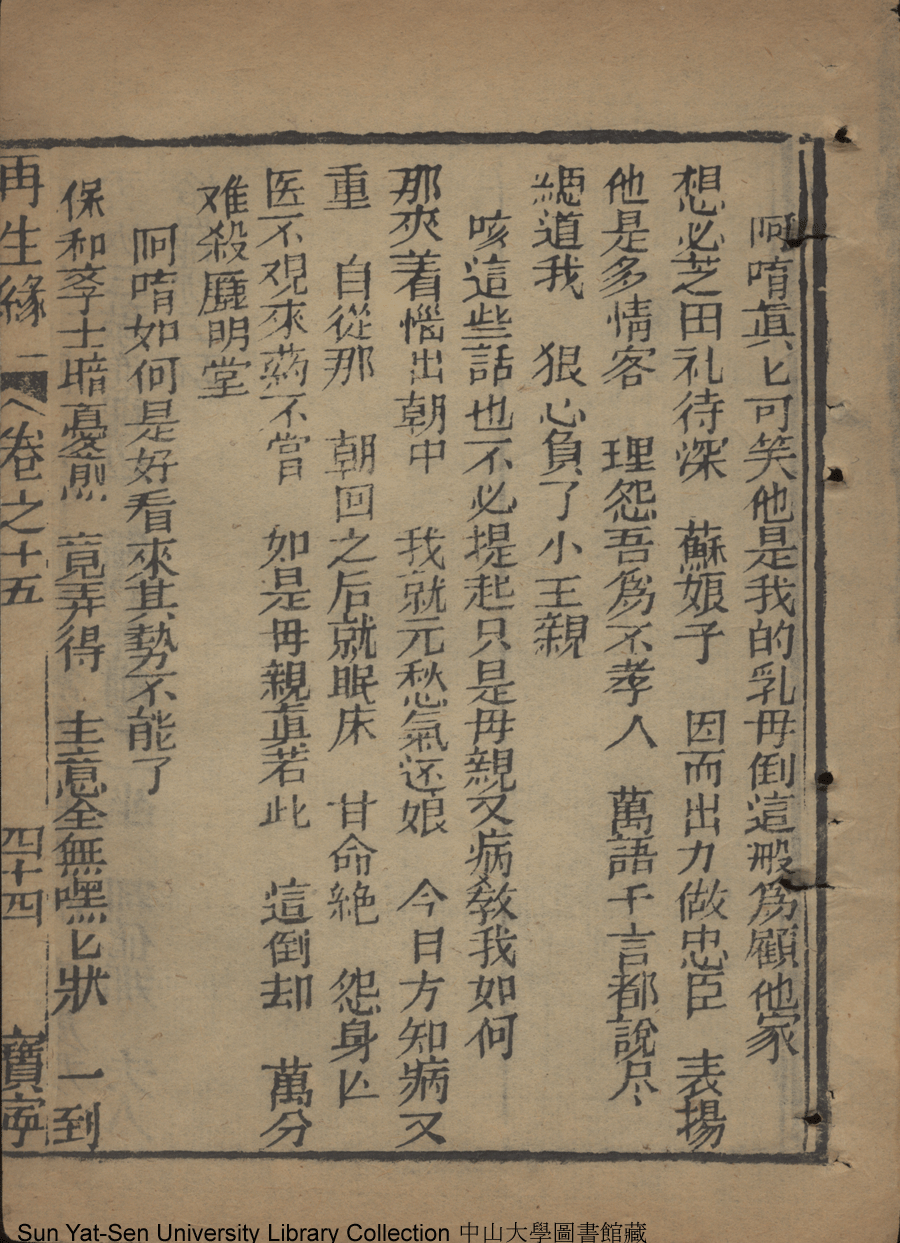 阿唷眞匕可笑他是我的乳毋倒這般爲顧他家
想必芝田礼待深　蘇娘子　因而出力做忠臣　表揚
他是多情客　理怨吾爲不孝人　萬語千言都說尽
緫道我　狠心負了小王親
咳這些話也不必提起只是毋親又病敎我如何
那夾着惱出朝中　我就元愁氣还娘　今日方知病又
重　自從那　朝回之后就眠床　甘命絶　怨身亾
医不覌來药不嘗　如是毋親眞若此　這倒却　萬分
难殺厘明堂
阿唷如何是好看來其勢不能了
保和李士暗憂煎　竟弄得　主意全無嘿匕狀　一到
再生緣　卷之十五　四十四　寶寧
Sun Yat-Sen University Library Collection 中山大學圖書館藏